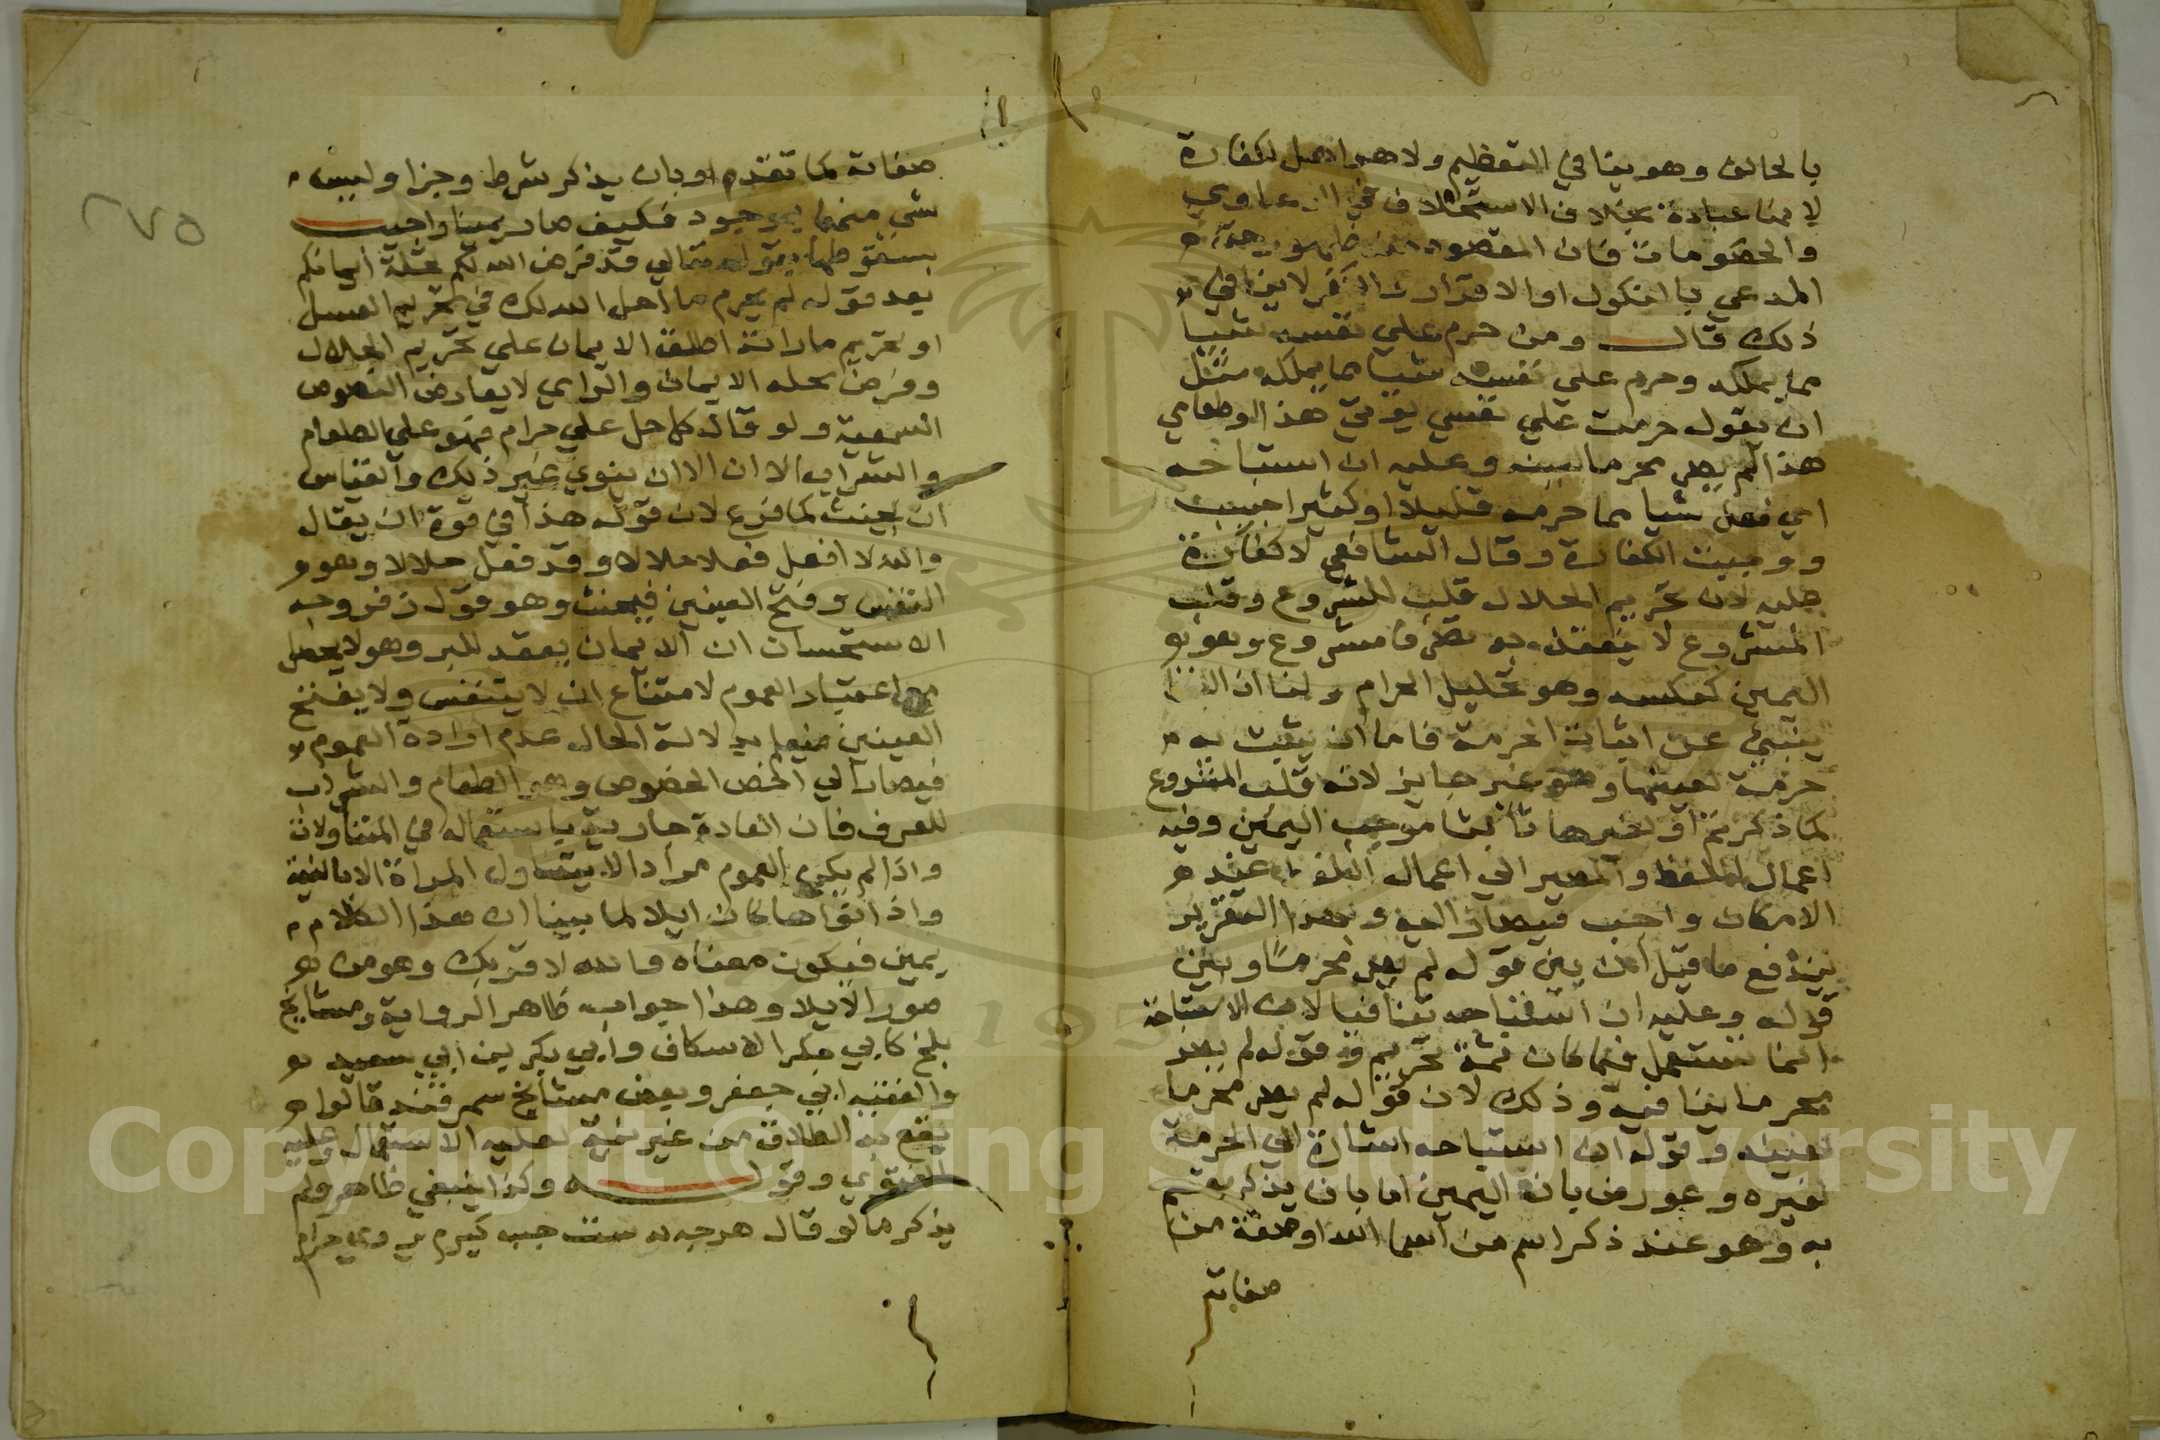 بالحالف وهو ينافي التعظيم ولا هو اهل لكفارة
لانها عبادة بخلاف الاستحلاف في الدعاوي
والخصومات فان المقصود منه ظهور حق
المدعي بالنكول او الاقرار والكفر لا ينافي
ذلك قال ومن حرم علي نفسه شيئا
مما يملكه وحرم علي نفسه شيا مما يملكه مثل
ان يقول حرمت علي نفسي ثوبي هذا او طعامي
هذا لم يصر محرما لعينه وعليه ان استباحه
اي فعل شيا مما حرمه قليلا او كثيرا حنث
ووجبت الكفارة وقال الشافعي لا كفارة
عليه لان تحريم الحلال قلب المشروع وقلب
المشروع لا ينعقد به تصرف مشروع وهو
اليمين كعكسه وهو تحليل الحرام ولنا ان اللفظ
ينبئ عن اثبات الحرمة فاما ان يثبت به
حرمة لعينها وهو غير جايز لانه قلب المشروع
لما ذكرتم او لغيرها باثبات موجب اليمين وفيه
اعمال اللفظ والمصير الي اعمال اللفظ عند
الامكان واجب فيصار اليه وبهذا التقرير
يندفع ما قيل ان بين قوله لم يصر محرما وبين
قوله وعليه ان استباحه تنافيا لان الاستباحة
انما تستعمل فيما كان ثمة تحريم وقوله لم يصر
محرما ينافيه وذلك لان قوله لم يصر محرما
لعينه وقوله ان استباحه اشارة الي الحرمة
لغيره وعورض بان اليمين اما بان يذكر مقسم
به وهو عند ذكر اسم من اسما الله او صفة من
صفاته
صفاته كما تقدم او بان يذكر شرط وجزا وليس
شي منهما بموجود فكيف صار يمينا واجيب
بسقوطها بقوله تعالي قد فرض الله لكم تحلة ايمانكم
بعد قوله لم تحرم ما احل الله لك في تحريم العسل
او تحريم مارية اطلق الايمان علي تحريم الحلال
وفرض تحلة الايمان والراي لا يعارض النصوص
السمعية ولو قال كل حل علي حرام فهو علي الطعام
والشراب الا ان الا ان ينوي غير ذلك والقياس
ان يحنث كما فرغ لان قوله هذا في قوة ان يقال
والله لا افعل فعلا حلالا وقد فعل حلالا وهو
التنفس وفتح العينين فيحنث وهو قول زفر وجه
الاستحسان ان الايمان يعقد للبر وهو لا يحصل
مع اعتبار العموم لامتناع ان لا يتنفس ولا يفتح
العينين فيعلم بدلالة الحال عدم ارادة العموم
فيصار الي اخص الخصوص وهو الطعام والشراب
للعرف فان العادة جارية باستعماله في المتناولات
واذا لم يكن العموم مرادا لا يتناول المراة الا بالنية
واذا نواها كان ايلا لما بينا ان هذا الكلام
يمين فيكون معناه والله لا اقربك وهو من
صور الايلا وهذا جواب ظاهر الرواية ومشايخ
بلخ كابي بكر الاسكاف وابي بكر بن ابي سعيد
والفقيه ابي جعفر وبعض مشايخ سمرقند قالوا
يقع به الطلاق من غير نية لغلبة الاستعمال وعليه
الفتوي وقوله وكذا ينبغي ظاهر ولم
يذكر ما لو قال هرچه بدست چپ كيرم بر وي حرام
٢٧٥